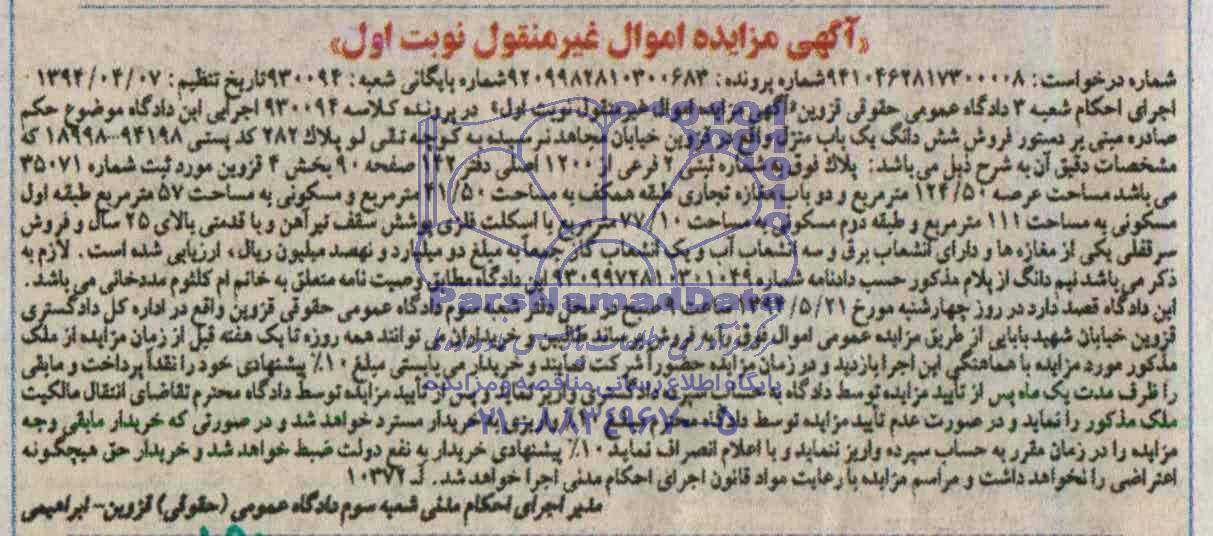 «آگهی مزایده اموال غیرمنقول نوبت اول»
شماره درخواست: ۹۴۱۰۴۶۲۸۱۷۳۰۰۰۰۸ شماره پرونده: ۹۲۰۹۹۸۲۸۱۰۳۰۰۶۸۳ شماره بایگانی شعبه: ۹۳۰۰۹۴ تاریخ تنظیم: ۱۳۹۴/۰۴/۰۷
اجرای احکام شعبه ۳ دادگاه عمومی حقوقی قزوین «آگهی مزایده اموال غیرمنقول نوبت اول» در پرونده کلاسه ۹۳۰۰۹۴ اجرایی این دادگاه موضوع حکم
صادره مبنی بر دستور فروش شش دانگ یک باب منزل واقع در قزوین خیابان مجاهد نرسیده به کوچه تقی لو پلاک ۲۸۲ کد پستی ۹۴۱۹۸-۱۸۹۹۸ که
مشخصات دقیق آن به شرح ذیل می باشد: پلاک فوق به شماره ثبتی ۲ فرعی از ۱۲۰۰ اصلی دفتر ۱۴۲ صفحه ۹۰ بخش ۴ قزوین مورد ثبت شماره ۳۵۰۷۱
می باشد مساحت عرصه ۱۲۴/۵۰ مترمربع و دو باب مغازه تجاری طبقه همکف به مساحت ۴۱/۵۰ مترمربع و مسکونی به مساحت ۵۷ مترمربع طبقه اول
مسکونی به مساحت ۱۱۱ مترمربع و طبقه دوم مسکونی به مساحت ۷۷/۱۰ مترمربع با اسکلت فلزی پوشش سقف تیرآهن و با قدمتی بالای ۲۵ سال و فروش
سرقفلی یکی از مغازه ها و دارای انشعاب برق و سه انشعاب آب و یک انشعاب گاز جمعاً به مبلغ دو میلیارد و نهصد میلیون ریال، ارزیابی شده است. لازم به
ذکر می باشد نیم دانگ از پلام مذکور حسب دادنامه شماره ۹۳۰۹۹۷۲۸۱۰۳۰۱۰۴۹ این دادگاه مطابق وصیت نامه متعلق به خانم ام کلثوم مددخانی می باشد.
این دادگاه قصد دارد در روز چهارشنبه مورخ ۱۳۹۴/۵/۲۱ ساعت ۹ صبح در محل دفتر شعبه سوم دادگاه عمومی حقوقی قزوین واقع در اداره کل دادگستری
قزوین خیابان شهید بابایی از طریق مزایده عمومی اموال فوق را به فروش برساند طالبین و خریداران می توانند همه روزه تا یک هفته قبل از زمان مزایده از ملک
مذکور مورد مزایده با هماهنگی این اجرا بازدید و در زمان مزایده حضوراً شرکت نمایند و خریدار می بایستی مبلغ ۱۰٪ پیشنهادی خود را نقداً پرداخت و مابقی
را ظرف مدت یک ماه پس از تأیید مزایده توسط دادگاه به حساب سپرده دادگستری واریز نماید و پس از تأیید مزایده توسط دادگاه محترم تقاضای انتقال مالکیت
ملک مذکور را نماید و در صورت عدم تأیید مزایده توسط دادگاه محترم مبلغ ۱۰٪ واریزی به خریدار مسترد خواهد شد و در صورتی که خریدار مابقی وجه
مزایده را در زمان مقرر به حساب سپرده واریز ننماید و یا اعلام انصراف نماید ۱۰٪ پیشنهادی خریدار به نفع دولت ضبط خواهد شد و خریدار حق هیچگونه
اعتراضی را نخواهد داشت و مراسم مزایده با رعایت مواد قانون اجرای احکام مدنی اجرا خواهد شد. لـ ۱۰۳۷۲
مدیر اجرای احکام مدنی شعبه سوم دادگاه عمومی (حقوقی) قزوین- ابراهیمی
ParsNamadData
پایگاه اطلاع رسانی مناقصه و مزایده
۰۲۱-۸۸۳۴۹۶۷۰-۵